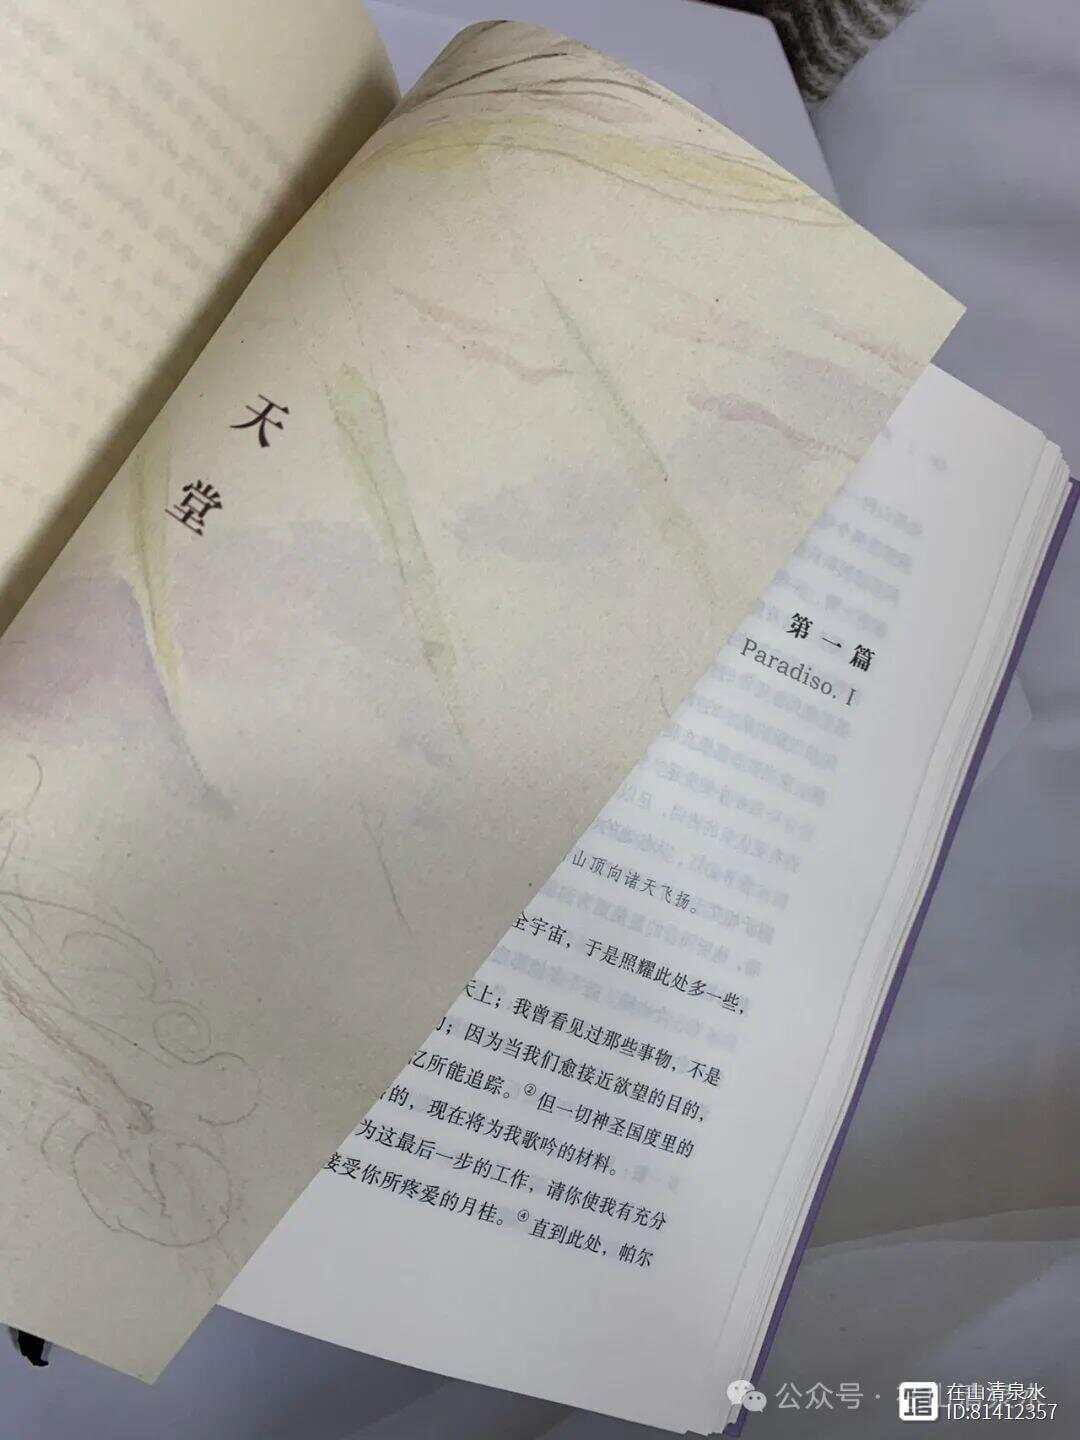 天堂
第一篇
Paradiso. I
山顶向诸天飞扬。
全宇宙，于是照耀此处多一些，
天上；我曾看见过那些事物，不是
因为当我们愈接近欲望的目的，
忆所能追踪。②但一切神圣国度里的
的，现在将为我歌吟的材料。
为这最后一步的工作，请你使我有充分
接受你所疼爱的月桂。④直到此处，帕尔
公众号·
在山清泉水
ID:81412357